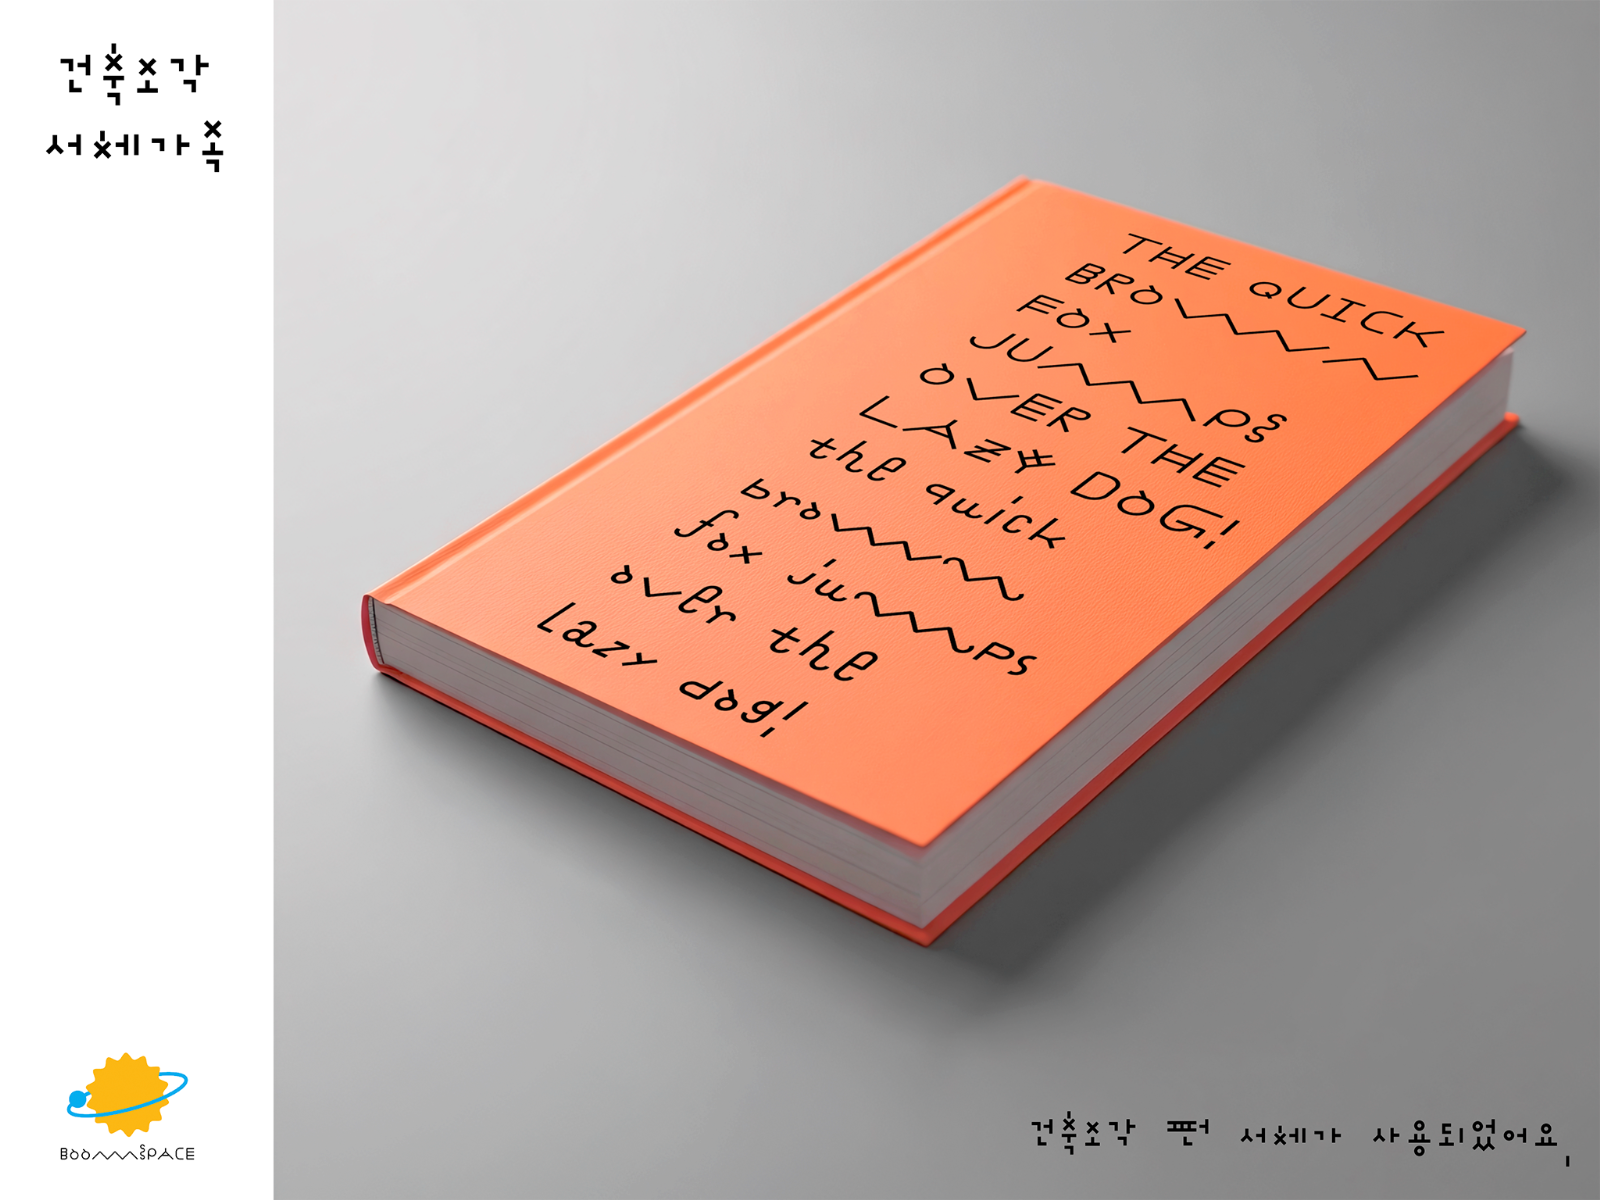 건축조각
서체가족
THE QUICK
BROWN
FOX
JUMPS
OVER THE
LAZY DOG!
the quick
brown
fox jumps
over the
lazy dog!
BOOMSPACE
건축조각 펀 서체가 사용되었어요.